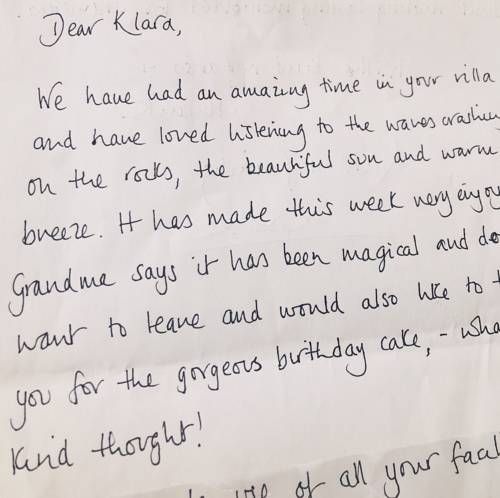 Dear Klara,
We have had an amazing time in your villa
and have loved listening to the waves crashin
on the rocks, the beautiful sun and warm
breeze. It has made this week very enjoy
Grandma says it has been magical and do
want to leave and would also like to t
you for the gorgeous birthday cake, - wha
Kind thought!
use of all your facil